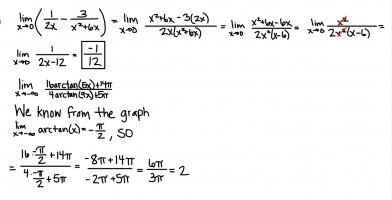 lim x→0 (1/2x - 3/(x²+6x)) = lim x→0 (x²+6x-3(2x))/(2x(x²+6x)) = lim x→0 (x²+6x-6x)/(2x²(x-6)) = lim x→0 x²/(2x²(x-6)) =
lim x→0 1/(2x-12) = -1/12
lim x→-∞ (16arctan(5x)+14π)/(4arctan(3x)+5π)
We know from the graph
lim x→-∞ arctan(x) = -π/2, so
= (16·-π/2 + 14π)/(4·-π/2 + 5π) = (-8π+14π)/(-2π+5π) = 6π/3π = 2